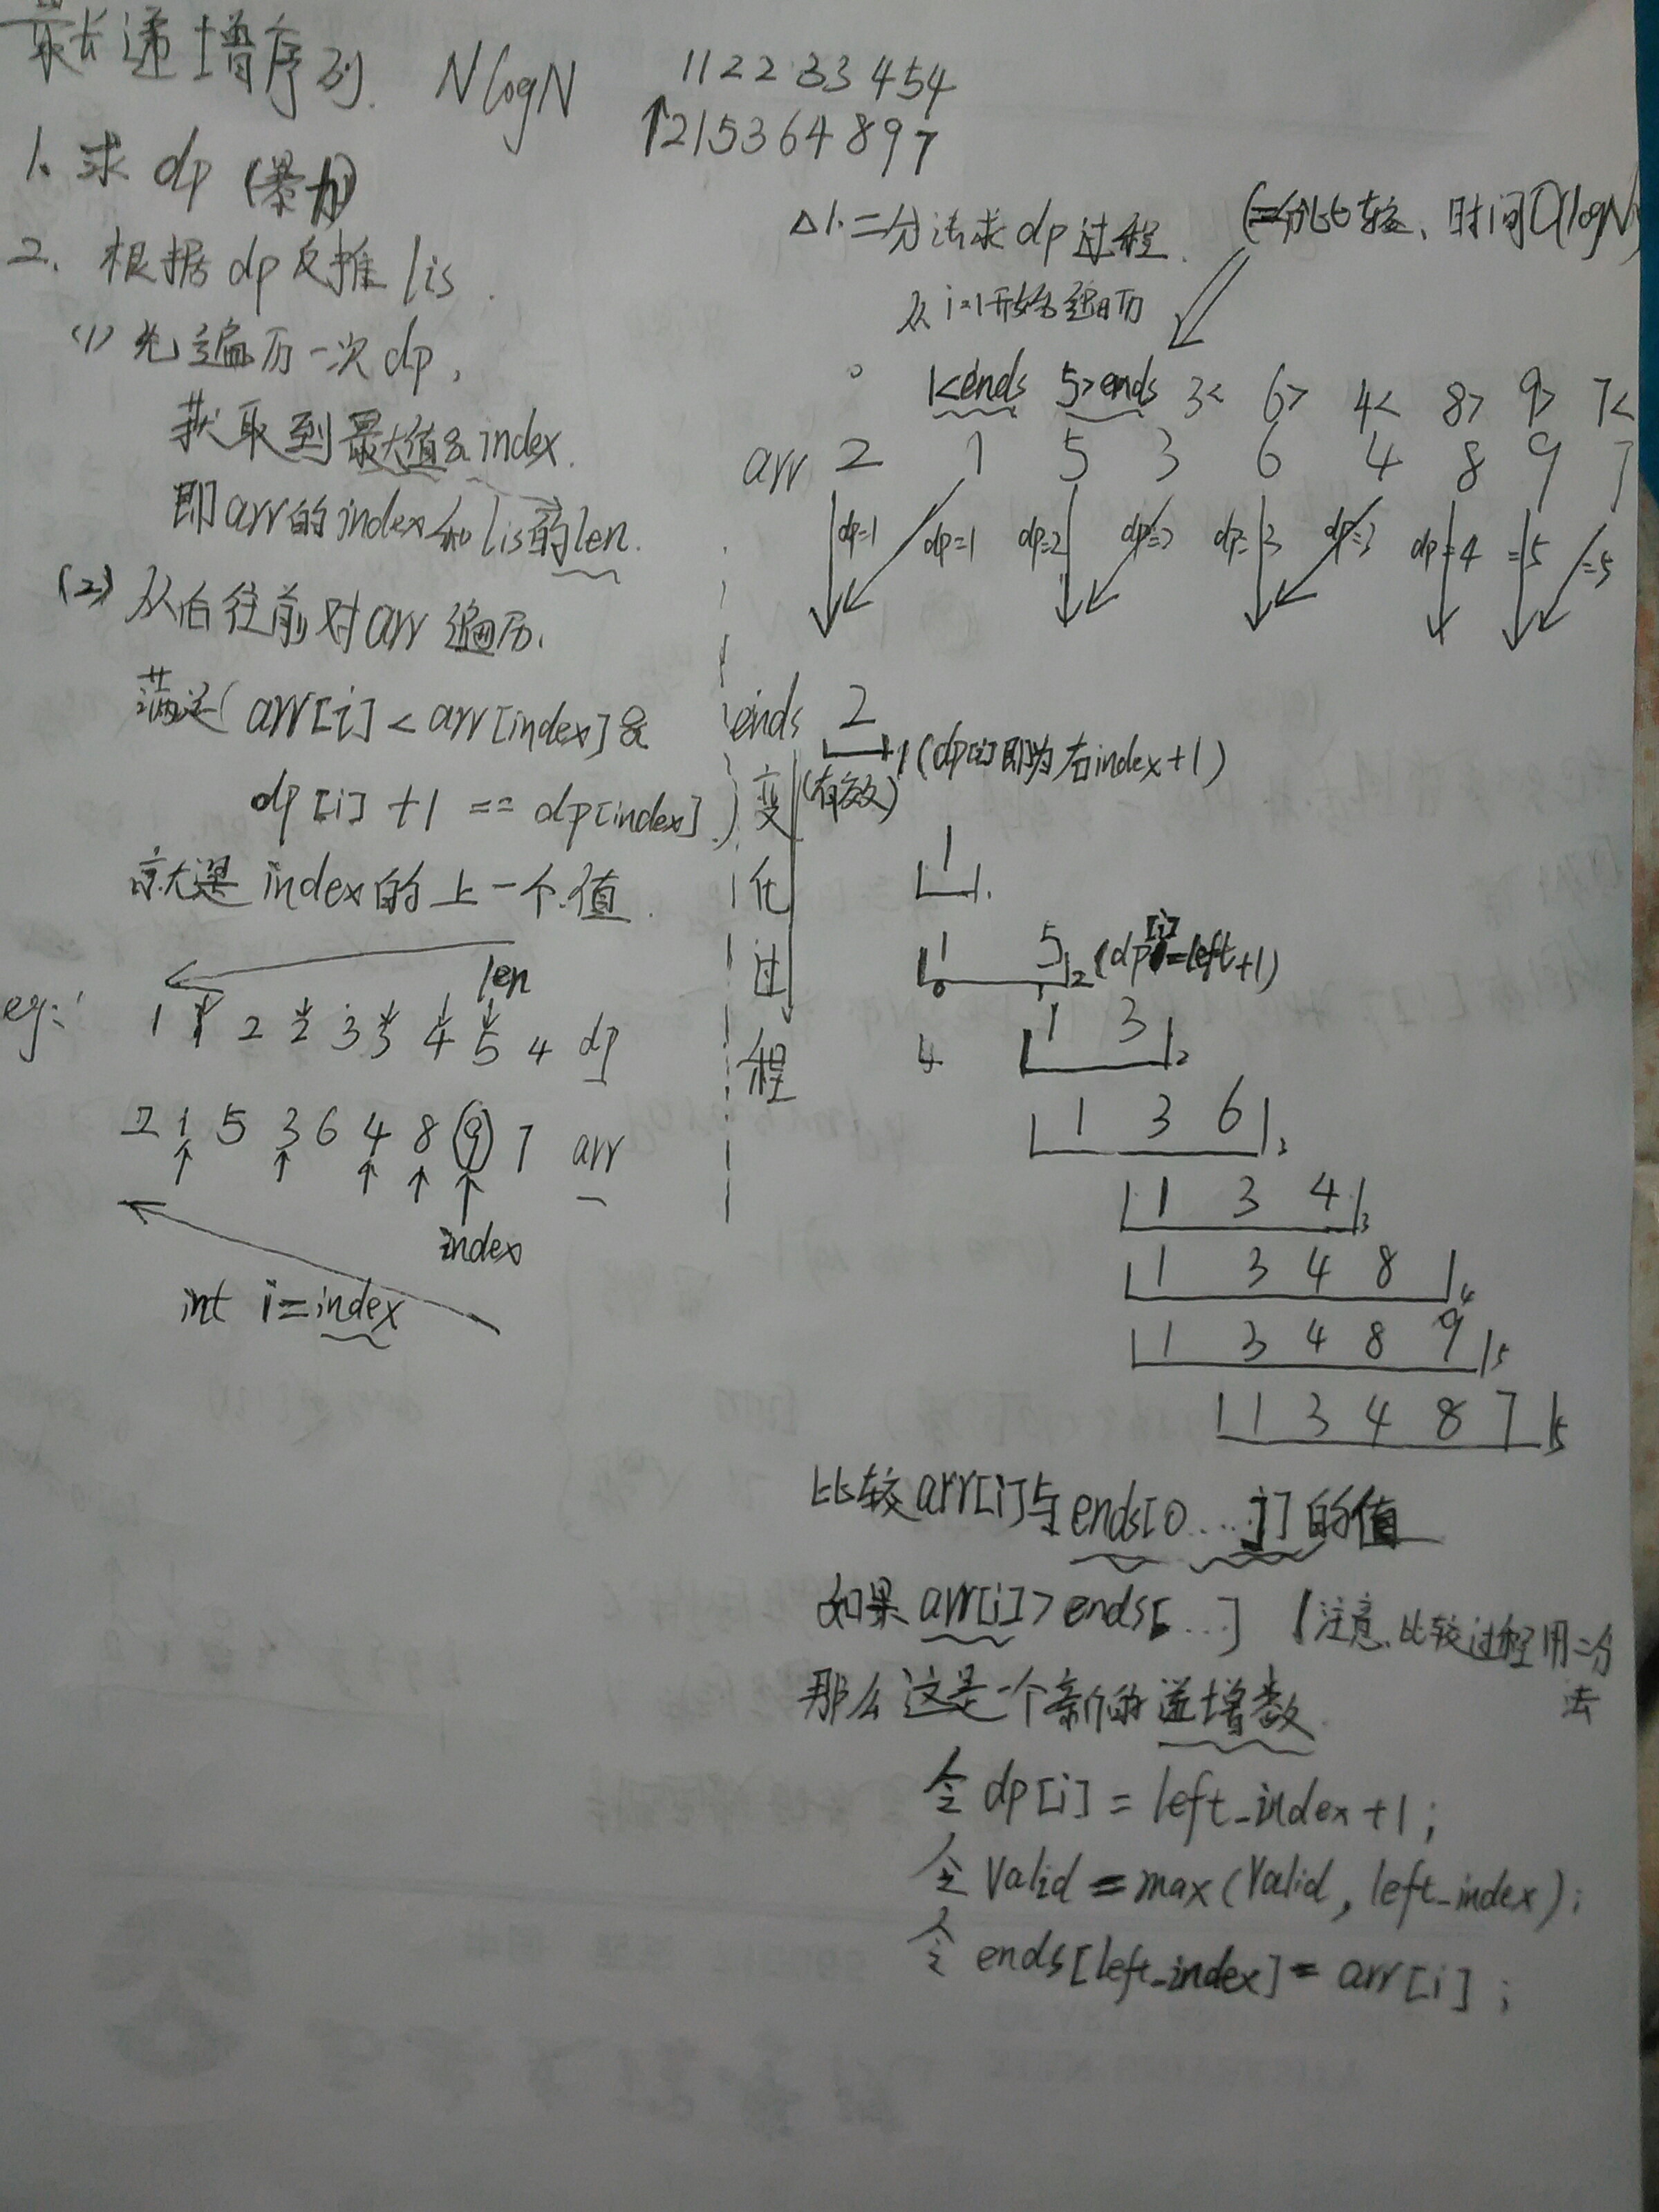 最长递增序列. NlogN
112233454
↑215364897
1. 求 dp (暴力)
2. 根据 dp 反推 lis.
(1) 先遍历一次 dp,
获取到最大值&index.
即arr的index和lis的len.
(2) 从后往前对arr遍历.
满足(arr[i]<arr[index]&
dp[i]+1==dp[index])
就是index的上一个值.
len
eg: 1 1 2 2 3 3 4 5 4 dp
2 1 5 3 6 4 8 9 7 arr
index
int i=index
△1.二分法求dp过程.
(二分比较、时间O(logN)
从i=1开始遍历
1<ends 5>ends 3< 6> 4< 8> 9> 7<
arr 2 1 5 3 6 4 8 9 7
dp=1 dp=1 dp=2 dp=2 dp=3 dp=3 dp=4 =5 =5
ends 2 1(dp[i]即为右index+1)
变化过程
(有效)
1 1.
1 5 2(dp[i]=left+1)
0 1
4 1 3 2
1 3 6 3
1 3 4 3
1 3 4 8 4
1 3 4 8 9 5
1 3 4 8 7 5
比较arr[i]与ends[0...j]的值
如果arr[i]>ends[...] (注意.比较过程用二分法
那么这是一个新的递增数.
令dp[i]=left_index+1;
令Valid=max(Valid,left_index);
令ends[left_index]=arr[i];